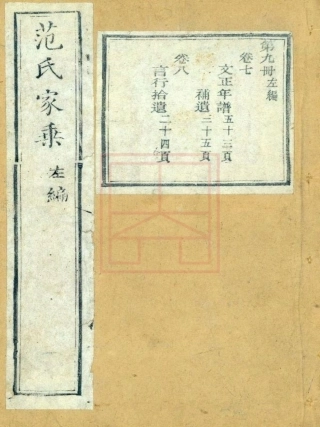 第九冊左編
卷七
文正年譜五十三頁
補遺三十五頁
卷八
言行拾遺二十四頁
范氏家乘
左編